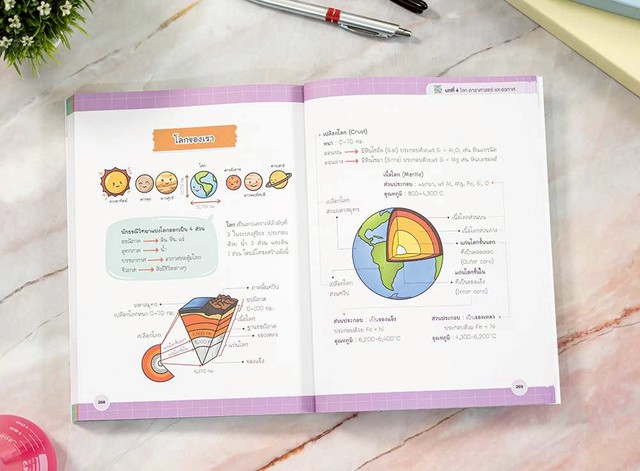 โลกของเรา
โลก
ดาวอังคาร
ดาวเสาร์
ดวงอาทิตย์
ดาวพุธ
ดาวศุกร์
ดาวพฤหัสบดี
นักธรณีวิทยาแบ่งโลกออกเป็น 4 ส่วน
ธรณีภาค → ดิน หิน แร่
อุทกภาค → น้ำ
บรรยากาศ → อากาศห่อหุ้มโลก
ชีวภาค → สิ่งมีชีวิตต่างๆ
โลก เป็นดาวเคราะห์ลำดับที่
3 ในระบบสุริยะ ประกอบ
ด้วย น้ำ 3 ส่วน และดิน
1 ส่วน โดยมีโครงสร้างดังนี้
ภาคพื้นทวีป
มหาสมุทร
ธรณีภาค
เปลือกโลกหนา 0-70 กม.
0-100 กม.
เนื้อโลก
ฐานธรณีภาค
เปลือกโลก
ของเหลว
แก่นโลก
ของแข็ง
6,370 กม.
268
บทที่ 4 โลก ดาราศาสตร์ และอวกาศ
เปลือกโลก (Crust)
หนา : 0-70 กม.
ส่วนบน → มีหินไซอัล (Sial) ประกอบด้วยแร่ Si + Al₂O₃ เช่น หินแกรนิต
ส่วนล่าง → มีหินไซมา (Sima) ประกอบด้วยแร่ Si + Mg เช่น หินบะซอลต์
เนื้อโลก (Mantle)
ส่วนประกอบ : แมกมา, แร่ Al, Mg, Fe, Si, O
อุณหภูมิ : 800-4,300°C
เปลือกโลก
ส่วนมหาสมุทร
เนื้อโลกส่วนบน
เนื้อโลกส่วนล่าง
แก่นโลกชั้นนอก
ที่เป็นของเหลว
(Outer core)
แก่นโลกชั้นใน
ที่เป็นของแข็ง
(Inner core)
เปลือกโลก
ส่วนทวีป
ส่วนประกอบ : เป็นของแข็ง
ประกอบด้วย Fe + Ni
อุณหภูมิ : 6,200-6,400°C
ส่วนประกอบ : เป็นของเหลว
ประกอบด้วย Fe + Ni
อุณหภูมิ : 4,300-6,200°C
269